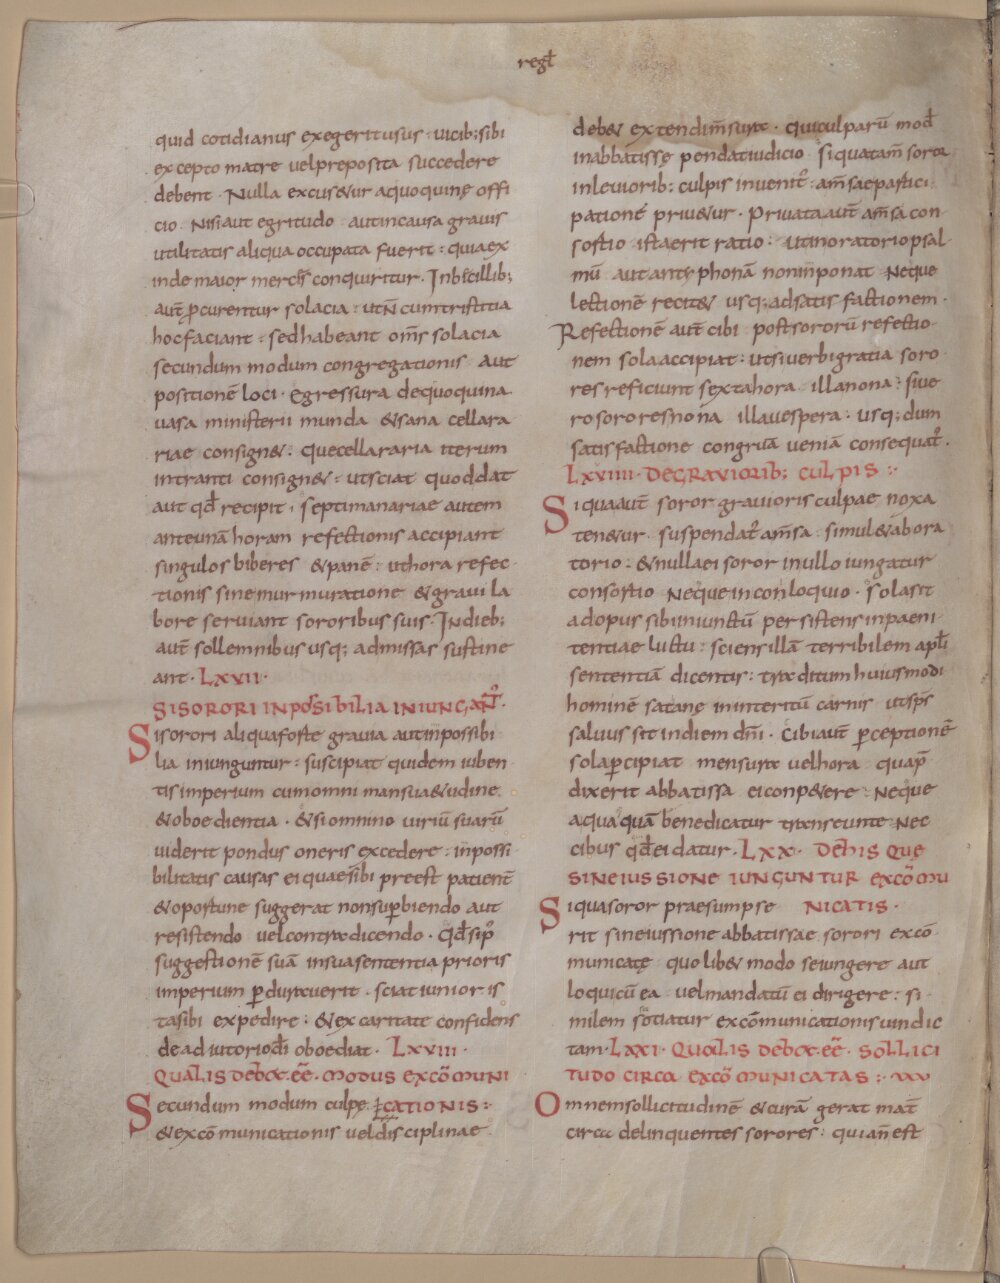 regł
quid cotidianus exegerit usus · uicib; sibi
excepto matre uel preposita succedere
debent · Nulla excusetur a quoquinę offi
cio · Nisi aut egritudo aut in causa grauis
utilitatis aliqua occupata fuerit : quia ex
inde maior mercis conquiritur · Inbicillib;
aut̄ ꝑcurentur solacia : ut n̄ cum tristitia
hoc faciant : sed habeant om̄s solacia
secundum modum congregationis aut
positionē loci · Egressura de quoquina
uasa ministerii munda & sana cellara
riae consign& : Que cellararia iterum
intranti consign& : ut sciat quod dat
aut qđ recipit ; septimanariae autem
ante unā horam refectionis accipiant
singulos biberes & panē : ut hora refec
tionis sine murmuratione & graui la
bore seruiant sororibus suis · In dieb;
aut̄ sollemnibus usq; ad missas sustine
ant · LXVII ·
SI SORORI INPOSSIBILIA INIUNGANT̄ ·
Si sorori aliqua forte grauia aut inpossibi
lia iniunguntur : suscipiat quidem iuben
tis imperium cum omni mansuetudine
& oboedientia · & si omnino uiriū suarū
uiderit pondus oneris excedere : inpossi
bilitatis causas ei quae sibi preest patient̄
& oportune suggerat non suꝑbiendo aut
resistendo uel contradicendo · Qđ si p̄
suggestionē suā in sua sententia prioris
imperium ꝑdurauerit · sciat iunior is
ta sibi expedire : & ex caritate confidens
de adiutorio dī oboediat · LXVIII ·
QUALIS DEBEAT EE · MODUS EXCŌMUNI
Secundum modum culpe CATIONIS :
& excōmunicationis uel disciplinae
deb& extendi m̄sura · qui culparū mod̄
in abbatissę pendat iudicio si qua tam̄ soror
in leuiorib; culpis inuenit̄ : a m̄sae partici
patione priu&ur · Priuata aut̄ a m̄sa con
sortio ista erit ratio : ut in oratorio psal
mū aut antyphonā non inponat Neque
lectionē recit& usq; ad satisfactionem ·
Refectionē aut̄ cibi post sororū refectio
nem sola accipiat : ut si uerbi gratia soro
res reficiunt sexta hora illa nona : si ue
ro sorores nona illa uespera : usq; dum
satisfactione congrua ueniā consequat̄ ·
LXVIIII · DE GRAVIORIB; CULPIS :
Si qua aut̄ soror grauioris culpae noxa
ten&ur suspendat̄ a m̄sa simul & ab ora
torio : & nulla ei soror in ullo iungatur
consortio Neque in conloquio · Sola sit
ad opus sibi iniunctū persistens in paeni
tentiae luctu : sciens illā terribilem apłi
sententiā dicentis : traditum huiusmodi
hominē satanę in interitū carnis ut sp̄s
saluus sit in diem dn̄i · Cibi aut̄ ꝑceptionē
sola ꝑcipiat mensura uel hora qua p̄
dixerit abbatissa ei conpetere · Neque
a quaquā benedicatur transeunte Nec
cibus qđ ei datur · LXX · DE HIS QUE
SINE IUSSIONE IUNGUNTUR EXCŌMU
Si qua soror praesumpse NICATIS ·
rit sine iussione abbatissae sorori excō
municatę quolib& modo se iungere aut
loqui cū ea uel mandatū ei dirigere : si
milem sortiatur excōmunicationis uindic
tam · LXXI · QUALIS DEBEAT EE · SOLLICI
TUDO CIRCA EXCŌMUNICATAS :
Omnem sollicitudinē & curā gerat mat̄
circa delinquentes sorores : quia n̄ est